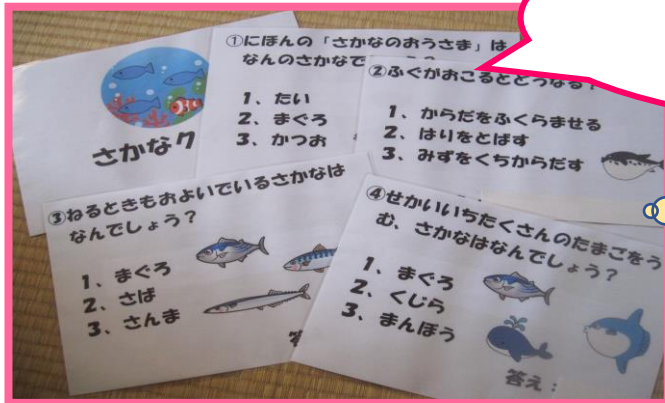 さかなク
①にほんの「さかなのおうさま」は
なんのさかなで
1、たい
2、まぐろ
3、かつお
②ふぐがおこるとどうなる?
1、からだをふくらませる
2、はりをとばす
3、みずをくちからだす
③ねるときもおよいでいるさかなは
なんでしょう?
1、まぐろ
2、さば
3、さんま
答
④せかいいちたくさんのたまごをう
む、さかなはなんでしょう?
1、まぐろ
2、くじら
3、まんぼう
答え: